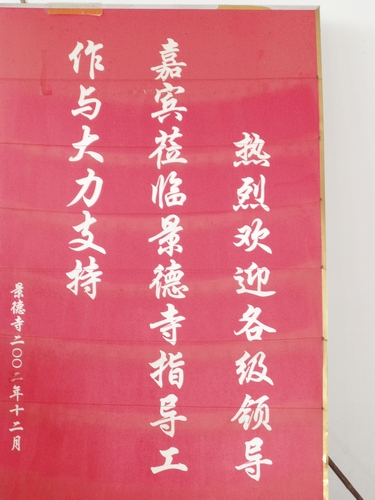 热烈欢迎各级领导
嘉宾莅临景德寺指导工
作与大力支持
景德寺二〇〇二年十二月